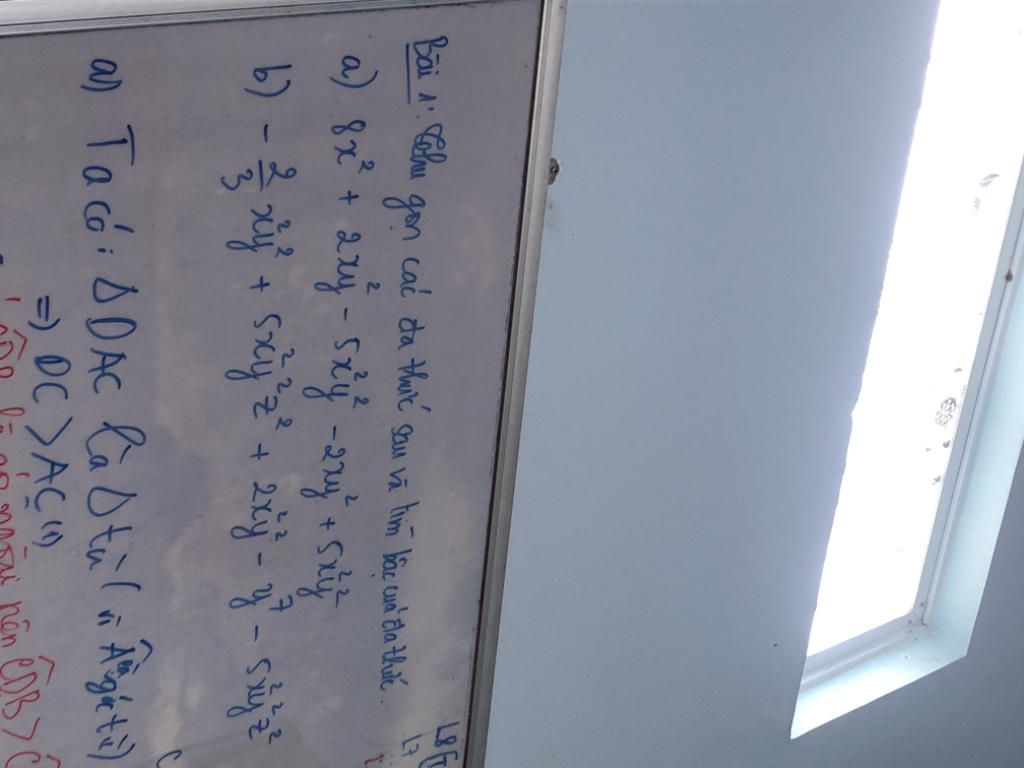 Bài 1: Thu gọn các đa thức sau và tìm bậc của đa thức.
a) 8x² + 2xy² - 5x²y² - 2xy² + 5x²y²
b) - 2/3 x²y² + 5xy²z² + 2x²y² - y⁷ - 5xy²z²
a) Ta có: Δ DAC là Δ tù ( vì Â là góc tù)
=> DC > AC (1)
là góc ngoài nên CDB >